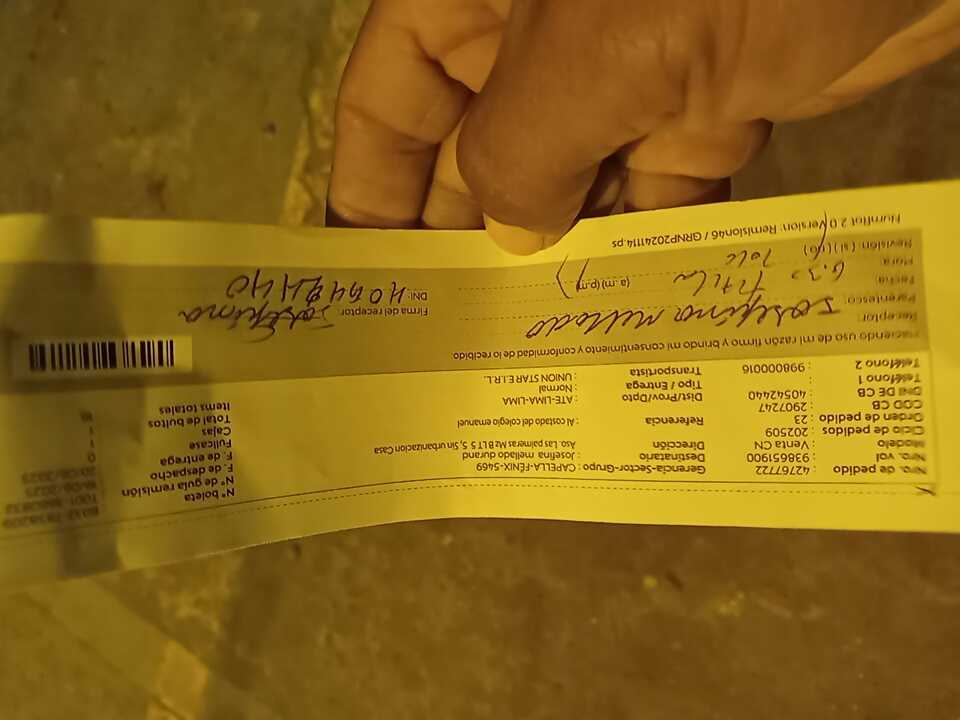 Nro. de pedido : 42767722 Gerencia-Sector-Grupo : CAPELLA-FÉNIX-5469 N° boleta
Nro. vol : 938651900 Destinatario : Josefina mellado durand N° de guía remisión
Modelo : Venta CN Dirección : Aso. Las palmeras Mz B LT 5 S, Sin urbanizacion Casa F. de despacho
Ciclo de pedidos : 202509 F. de entrega
Orden de pedido : 23 Referencia : Al costado del colegio emanuel Fullcase 0
COD CB : 2907247 Dist/Prov/Dpto : ATE-LIMA-LIMA Cajas 1
DNI DE CB : 40542440 Tipo / Entrega : Normal Total de bultos 1
Teléfono 1 : Transportista : UNION STAR E.I.R.L. Items totales 16
Teléfono 2 : 998000016
Haciendo uso de mi razón firmo y brindo mi consentimiento y conformidad de lo recibido
Receptor: Josefina mellado Firma del receptor: Josefina
Parentesco: Titula
Fecha: DNI:
Hora: 6.30 (a.m)(p.m)
Revisión (si) (no)
Humflot 2.0 Version: Remision46 / GRNP20241114.ps